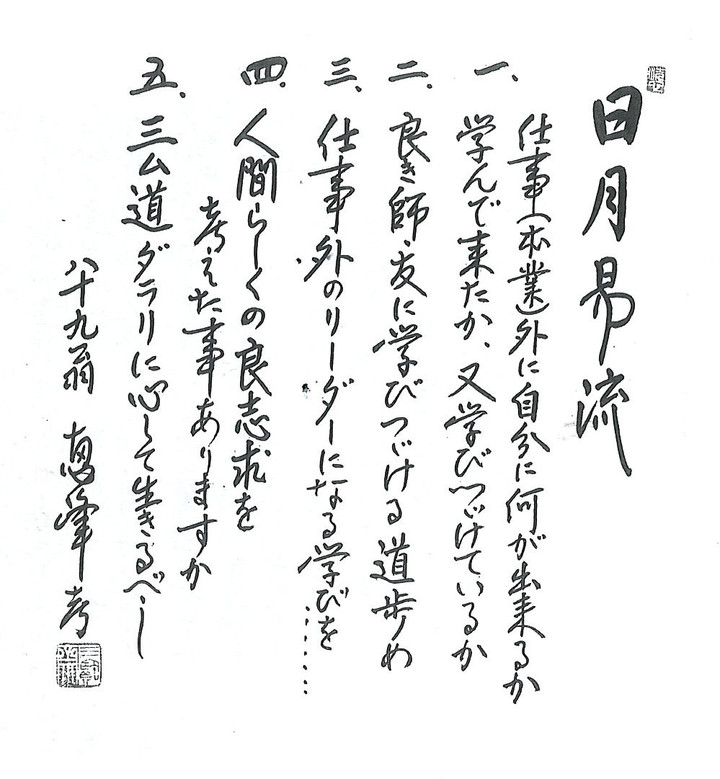 日月易流
一、仕事(本業)外に自分に何が出来るか
学んで来たか、又学びつゞけているか
二、良き師・友に学びつゞける道歩め
三、仕事外のリーダーになる学びを……
四、人間らしくの良志求を
考えた事ありますか
五、三ム道ダラリに心して生きるべし
八十九翁 恵峰 考